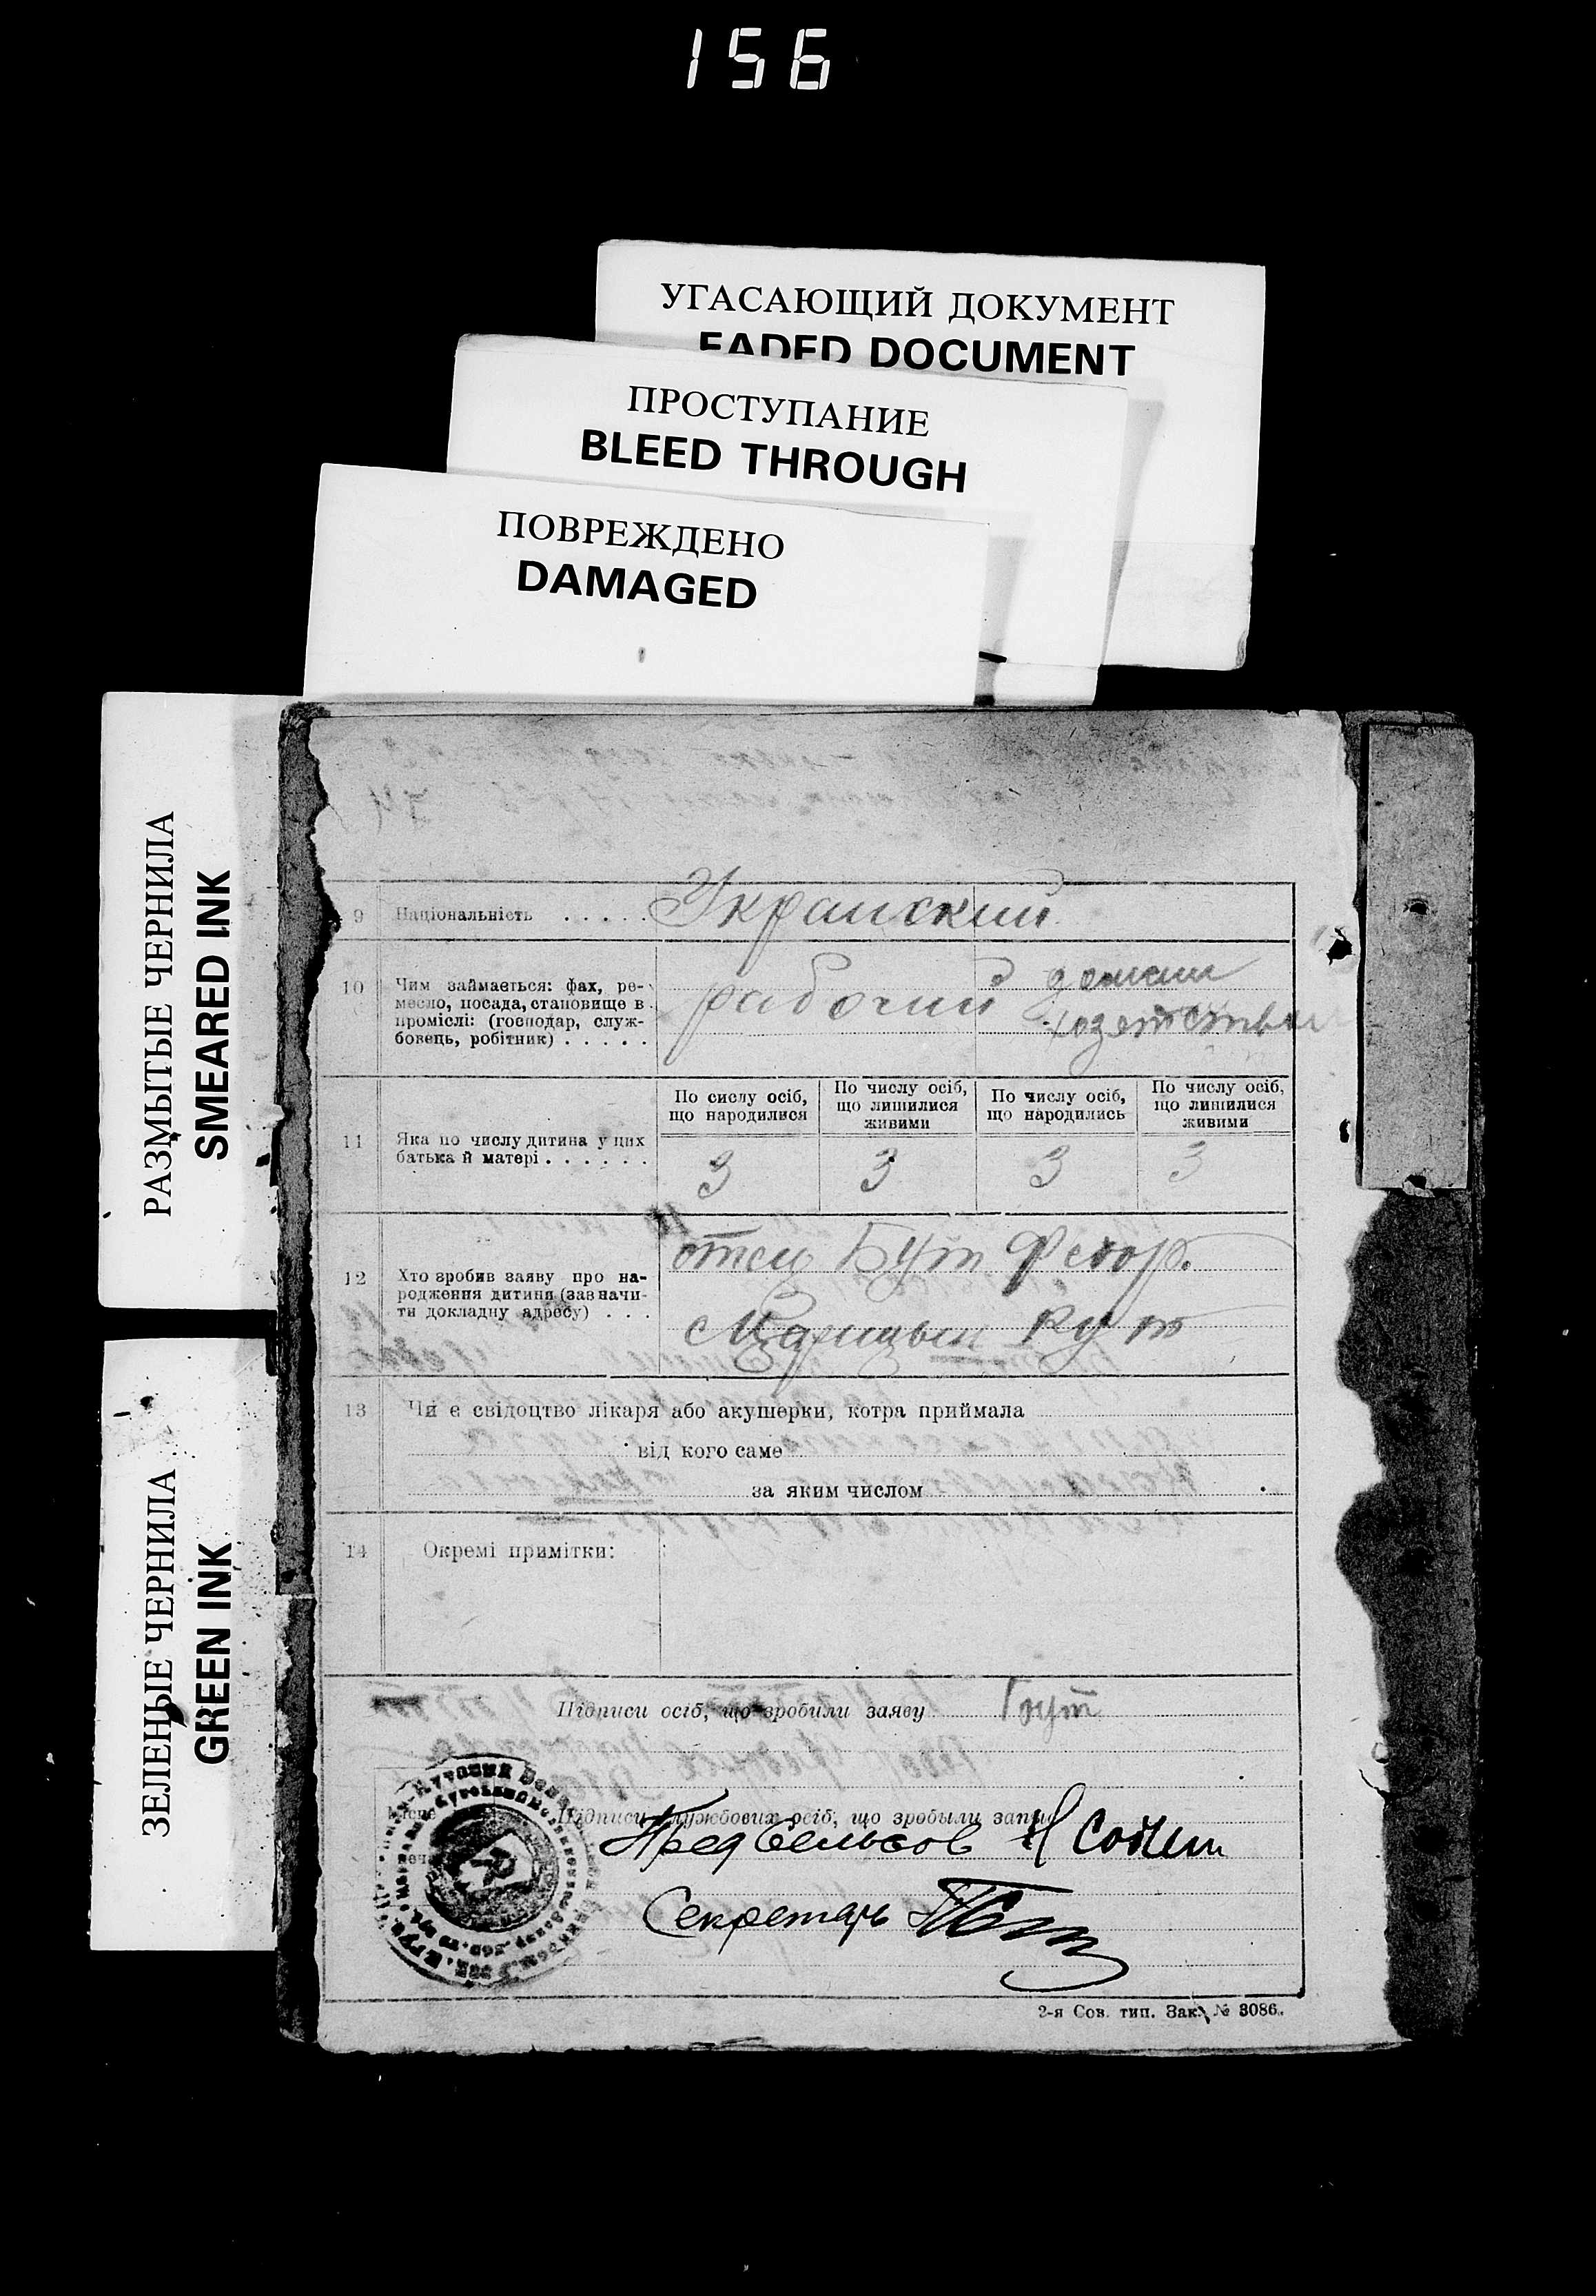 156
УГАСАЮЩИЙ ДОКУМЕНТ
FADED DOCUMENT
ПРОСТУПАНИЕ
BLEED THROUGH
ПОВРЕЖДЕНО
DAMAGED
РАЗМЫТЫЕ ЧЕРНИЛА
SMEARED INK
ЗЕЛЕНЫЕ ЧЕРНИЛА
GREEN INK
9 Національність ..... Украиский
10 Чим займається: фах, ре-
месло, посада, становище в
проміслі: (господар, служ-
бовець, робітник) .....
рабочий
По сислу осіб, що народилися
По числу осіб, що лишилися живими
По числу осіб, що народились
По числу осіб, що лишилися живими
11 Яка по числу дитина у цих
батька й матері ......
3 3 3 3
12 Хто зробив заяву про на-
родження дитини (зазначи-
ти докладну адресу) ...
отец Бут Федор.
с Царицын Кут
13 Чи є свідоцтво лікаря або акушерки, котра приймала
від кого саме
за яким числом
14 Окремі примітки:
Підписи осіб, що зробили заяву
Підписи службових осіб, що зробыли запис
Пред Сельсов
Секретарь
2-я Сов. тип. Зак. № 3086.